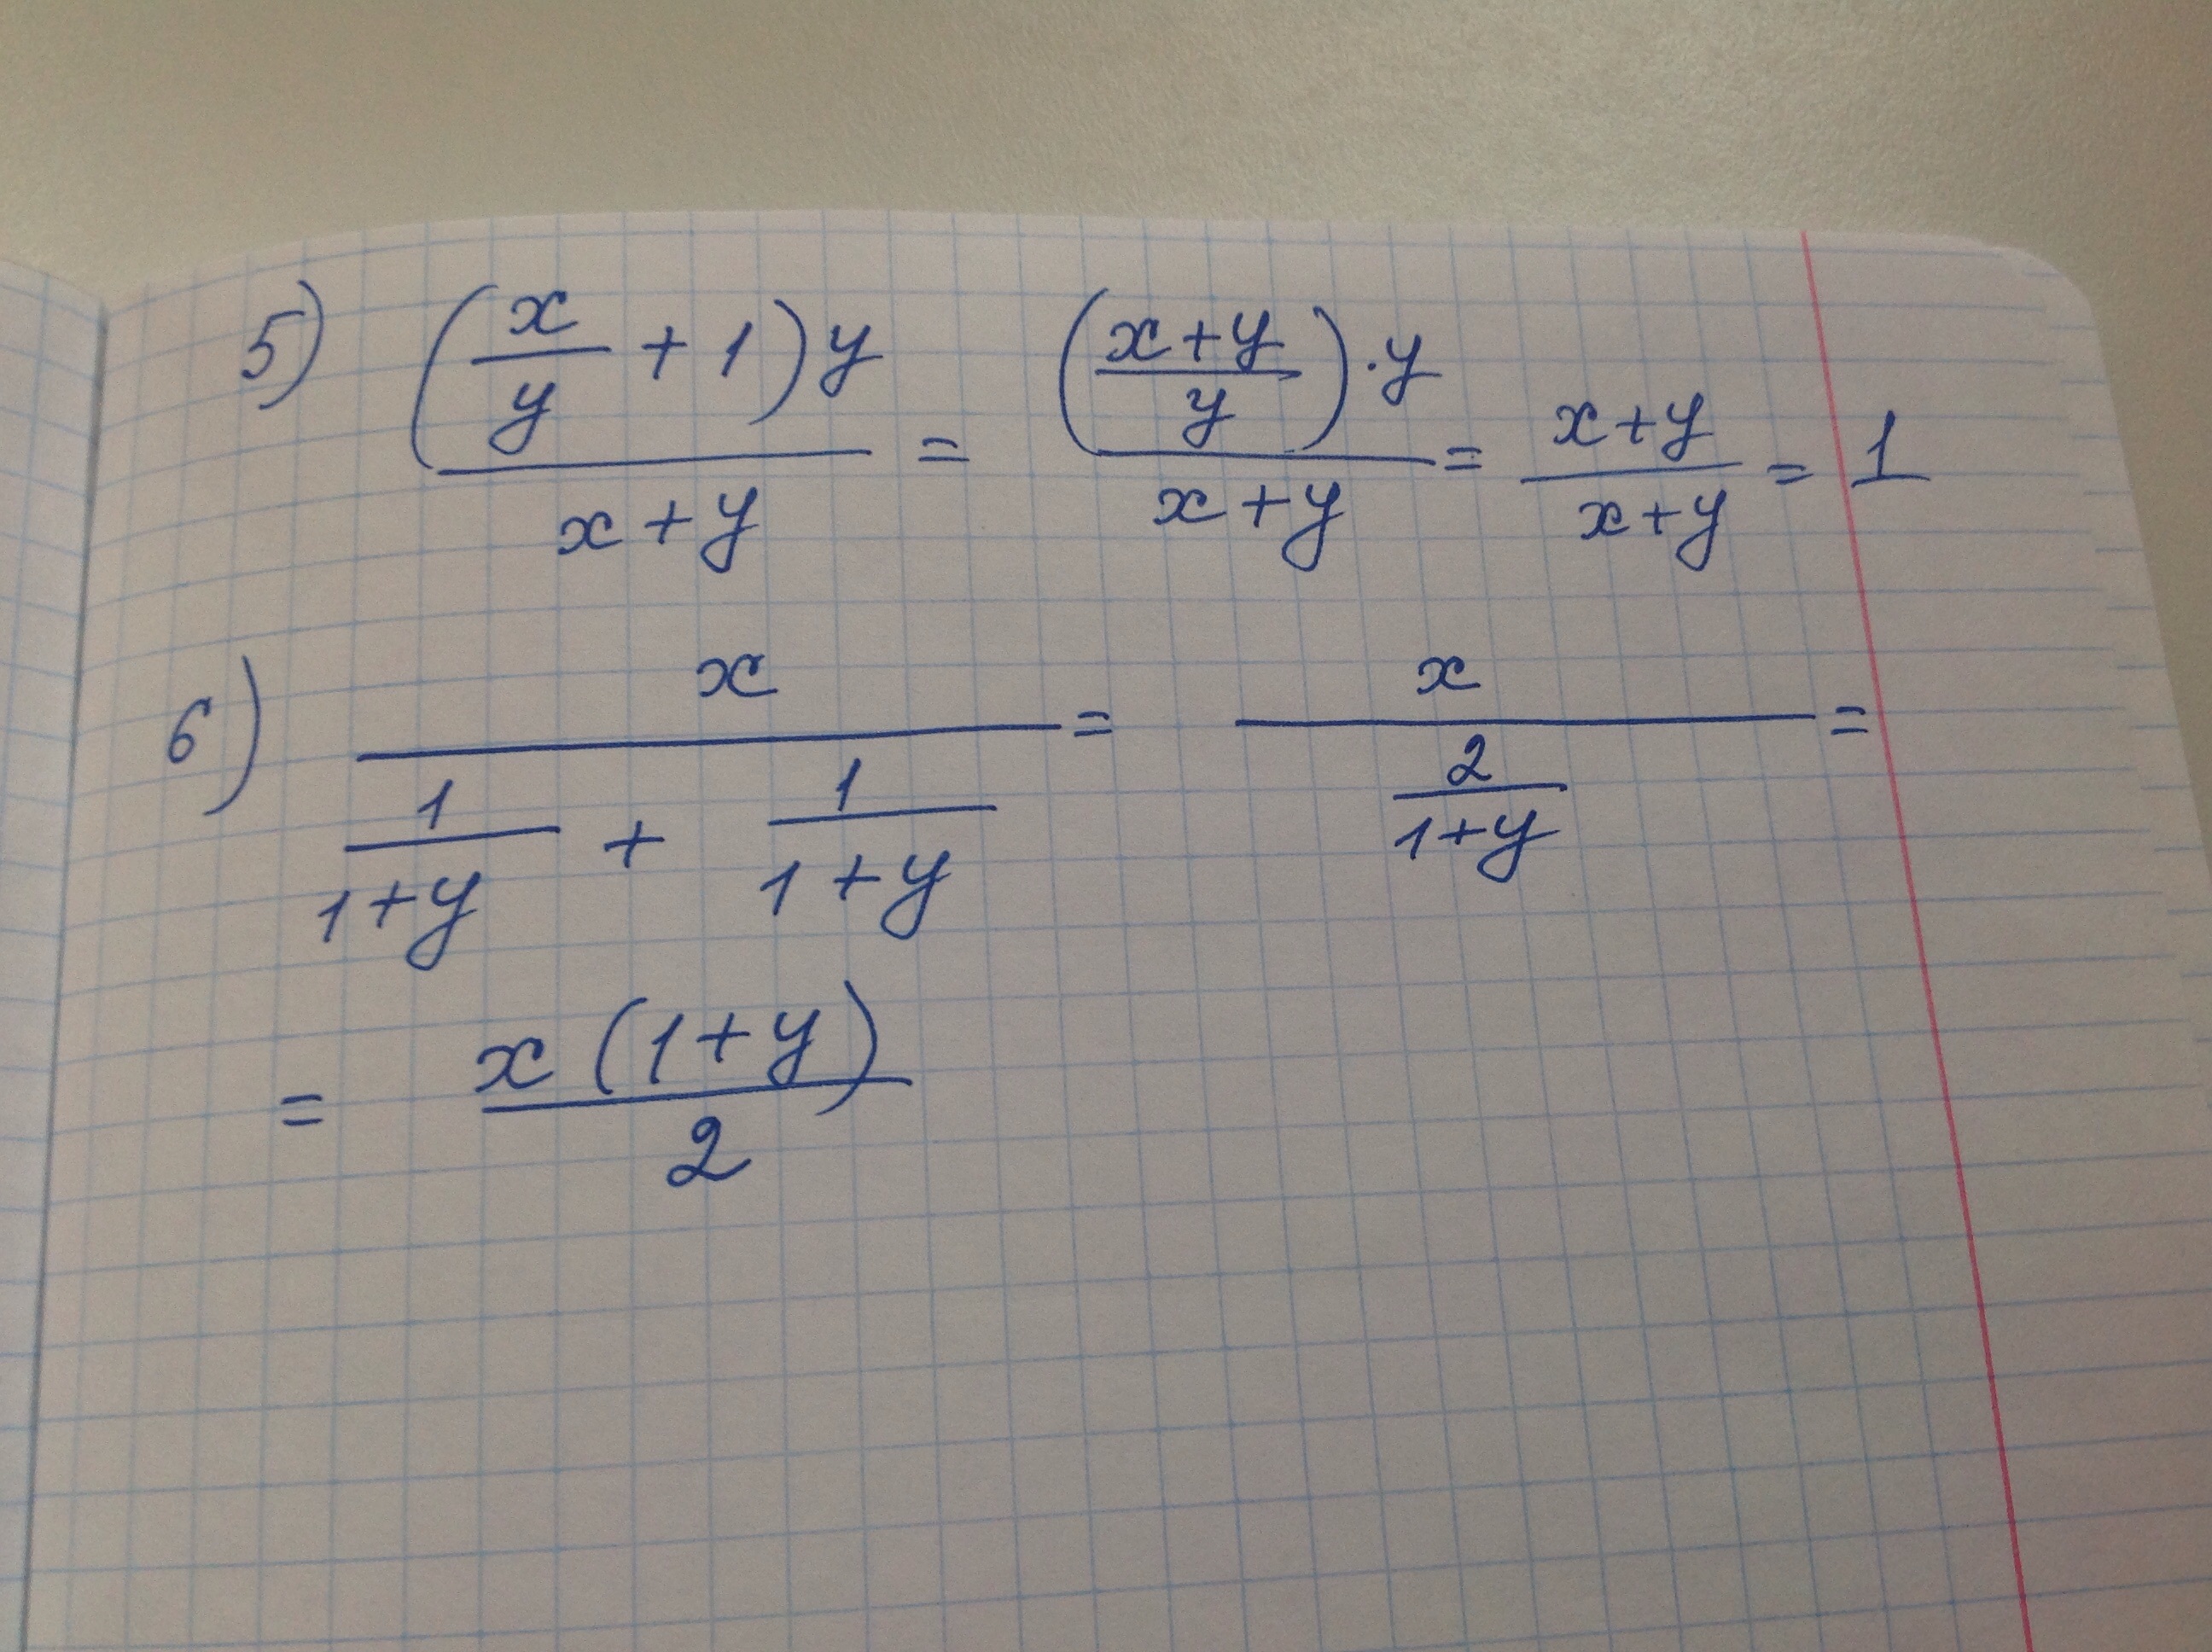 5) ((x/y + 1)y)/(x+y) = (((x+y)/y)·y)/(x+y) = (x+y)/(x+y) = 1
6) x/(1/(1+y) + 1/(1+y)) = x/(2/(1+y)) =
= x(1+y)/2